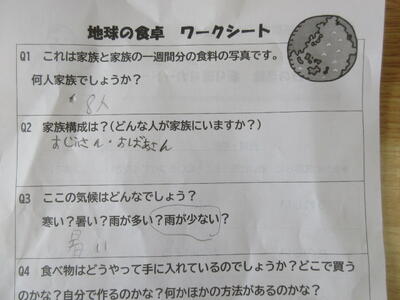 地球の食卓 ワークシート
Q1 これは家族と家族の一週間分の食料の写真です。
何人家族でしょうか?
8人
Q2 家族構成は?(どんな人が家族にいますか?)
おじさん・おばあさん
Q3 ここの気候はどんなでしょう?
寒い?暑い?雨が多い?雨が少ない?
暑い
Q4 食べ物はどうやって手に入れているのでしょうか?どこで買う
のかな?自分で作るのかな?何かほかの方法があるのかな?